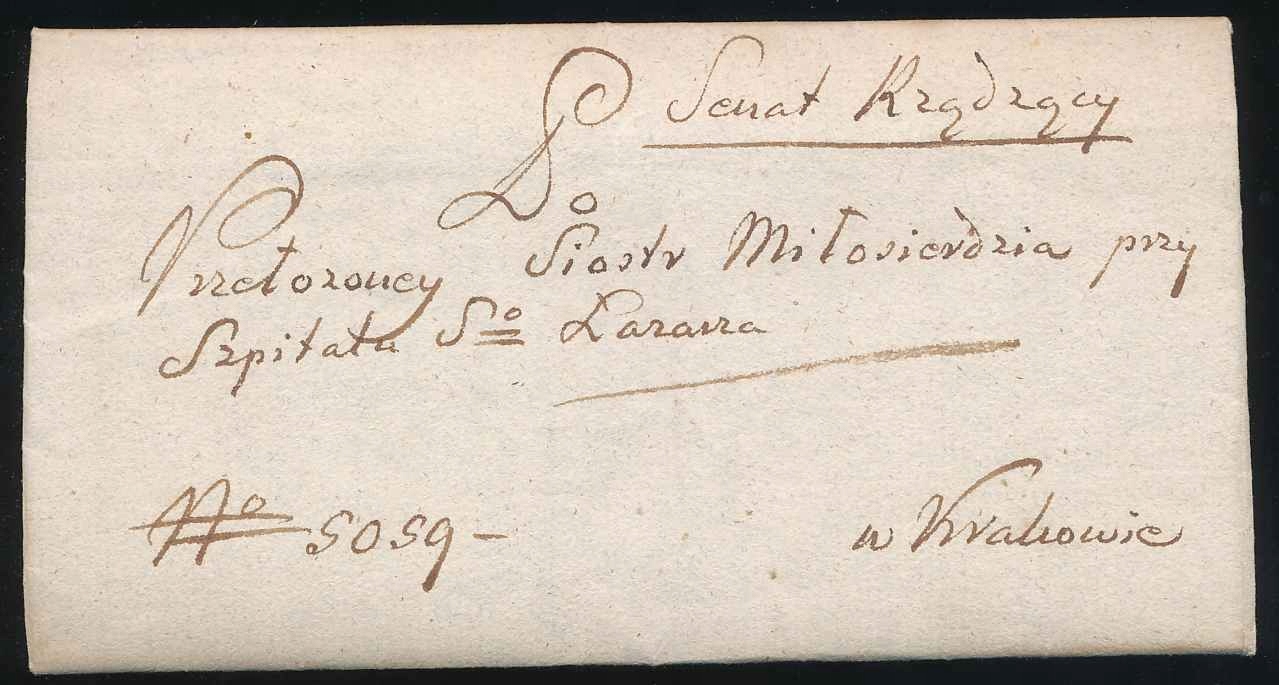 Senat Rządzący
Do
Przełożoney Siostr Miłosierdzia przy
Szpitalu Sgo Łazarza
No 5059 -
w Krakowie